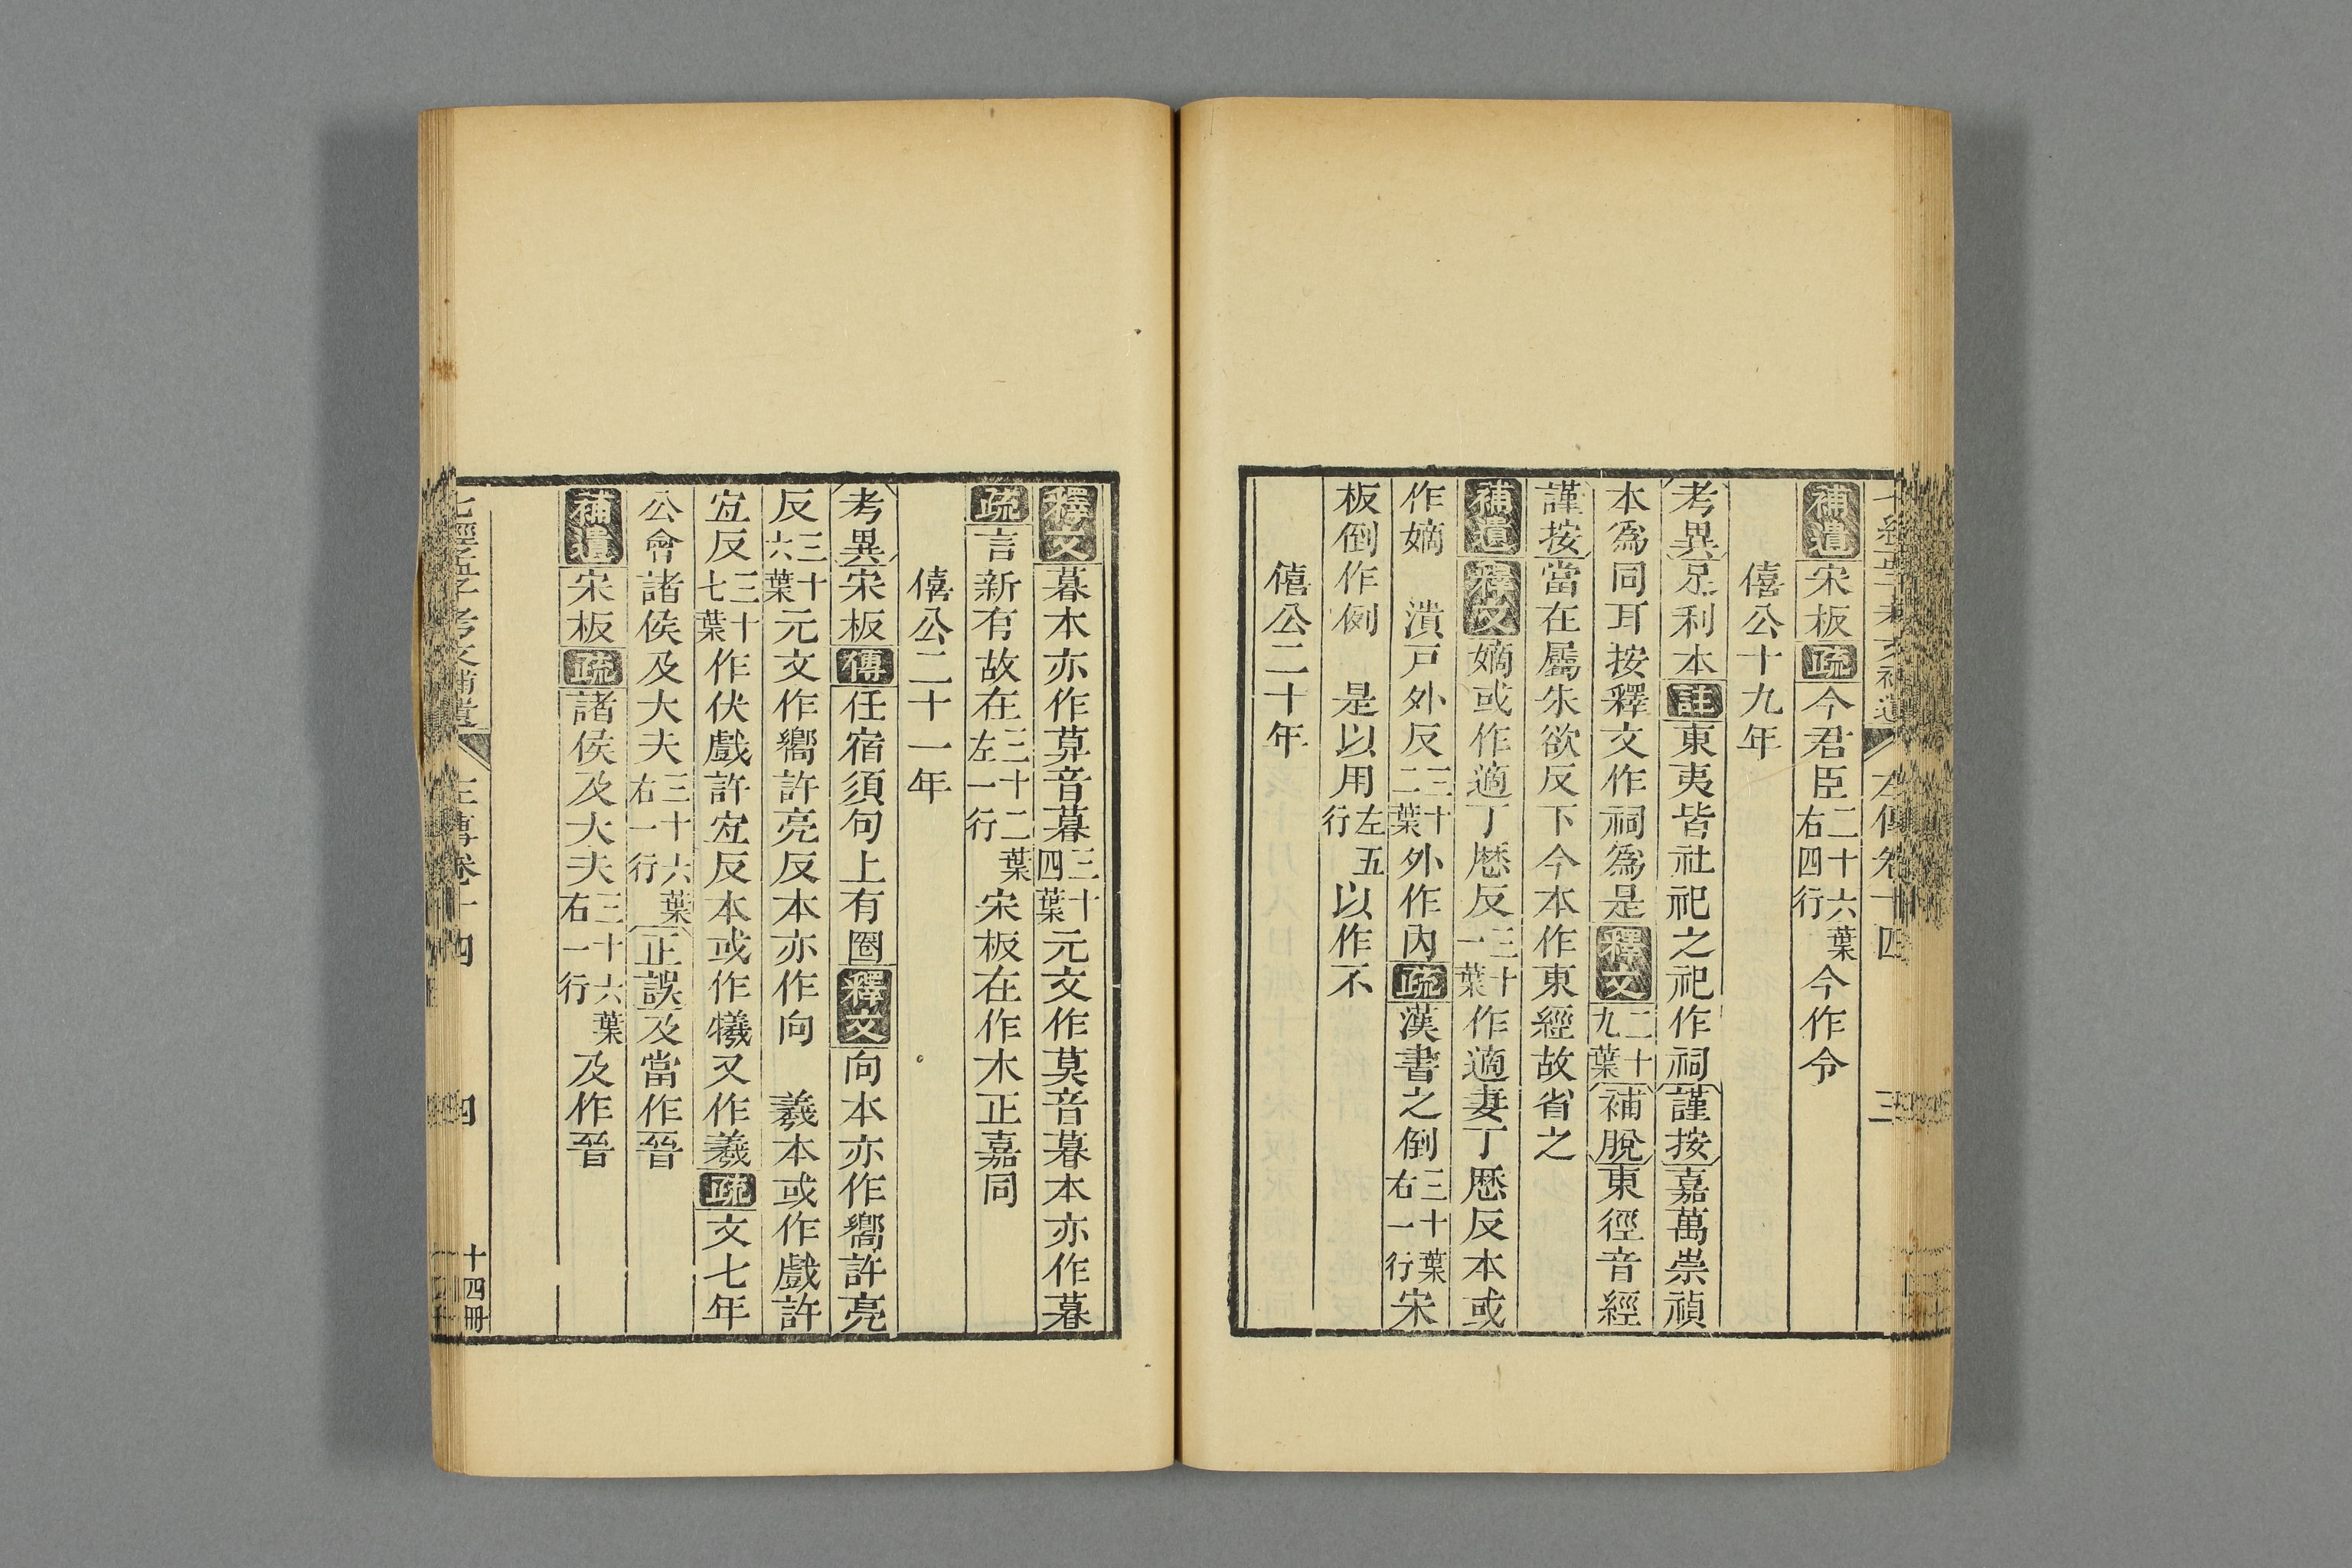 補遺宋板疏今君臣二十六葉右四行今作令
僖公十九年
考異足利本註東夷皆社祀之祀作祠謹按嘉萬崇禎
本爲同耳按釋文作祠爲是釋文二十九葉補脫東徑音經
謹按當在屬朱欲反下今本作東經故省之
補遺釋文嫡或作適丁歷反三十一葉作適妻丁歷反本或
作嫡　潰戸外反三十二葉外作內疏漢書之倒三十葉右一行宋
板倒作例　是以用左五行以作不
僖公二十年
釋文暮本亦作莫音暮三十四葉元文作莫音暮本亦作暮
疏言新有故在三十二葉左一行宋板在作木正嘉同
僖公二十一年
考異宋板傳任宿須句上有圈釋文向本亦作嚮許亮
反三十六葉元文作嚮許亮反本亦作向　羲本或作戲許
宜反三十七葉作伏戲許宜反本或作犧又作羲疏文七年
公會諸侯及大夫三十六葉右一行正誤及當作晉
補遺宋板疏諸侯及大夫三十六葉右一行及作晉
七經孟子考文補遺　左傳卷十四　四　十四冊